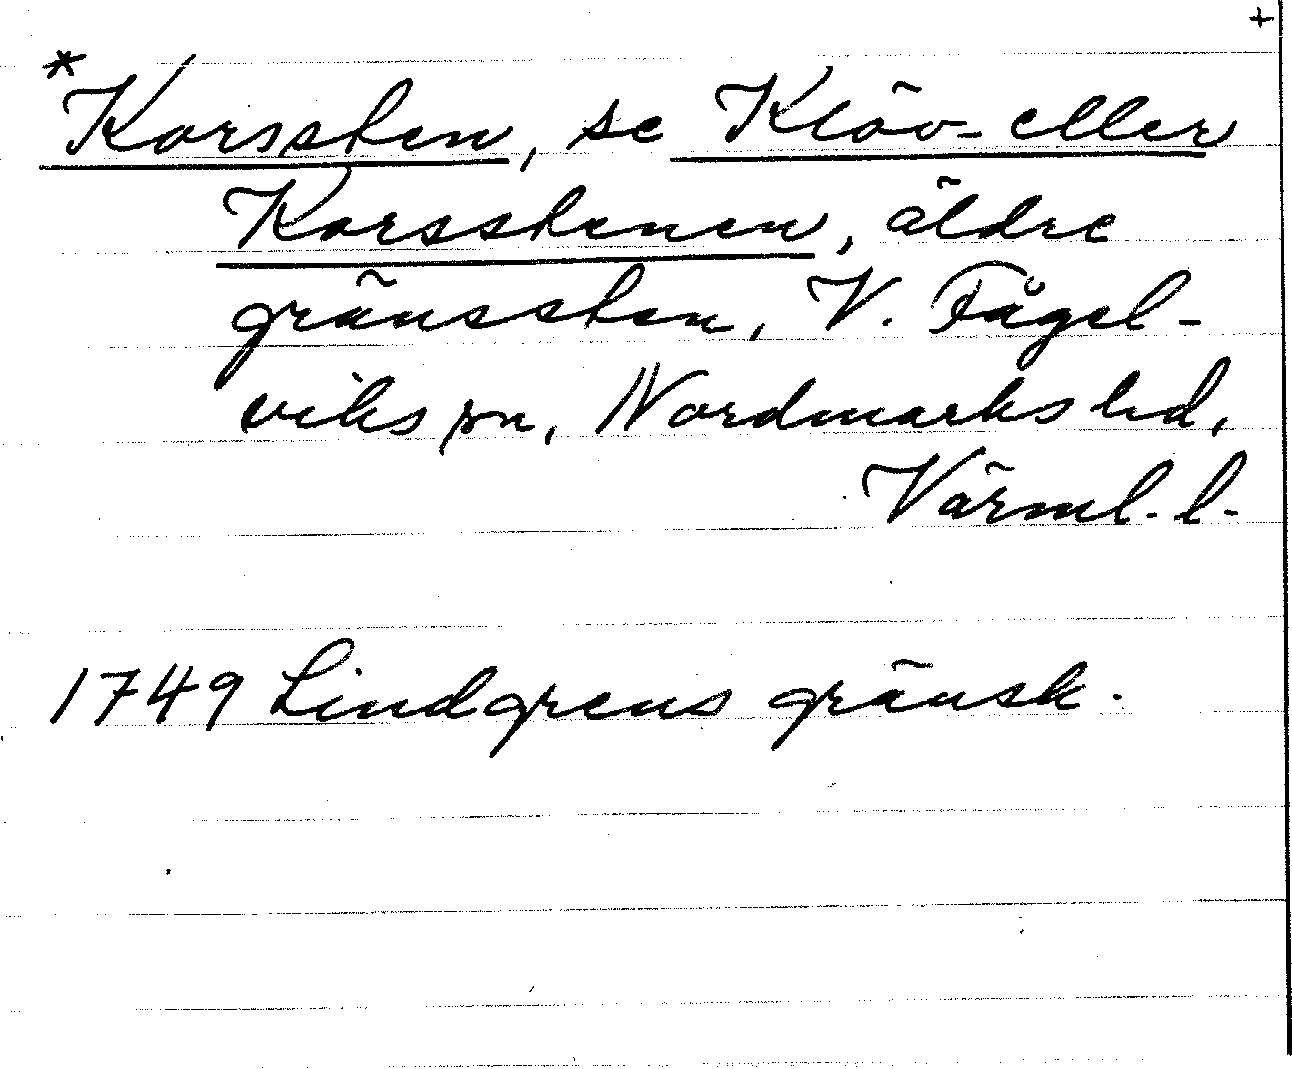 +
*Korssten, se Klöv- eller
Korsstenen, äldre
gränssten, V. Fågel-
viks sn, Nordmarks hd,
Värml. l.
1749 Lindgrens gränsk.